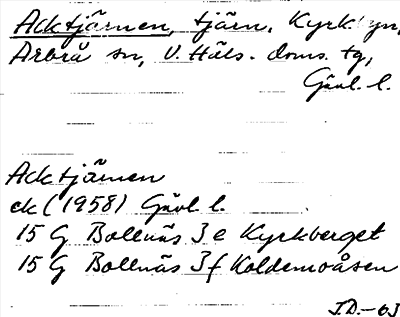 Acktjärnen, tjärn, Kyrkbyn,
Arbrå sn, V. Häls. doms. tg,
Gävl. l.
Acktjärnen
ek (1958) Gävl l.
15 G Bollnäs 3 e Kyrkberget
15 G Bollnäs 3 f Koldemoåsen
J.D.-63